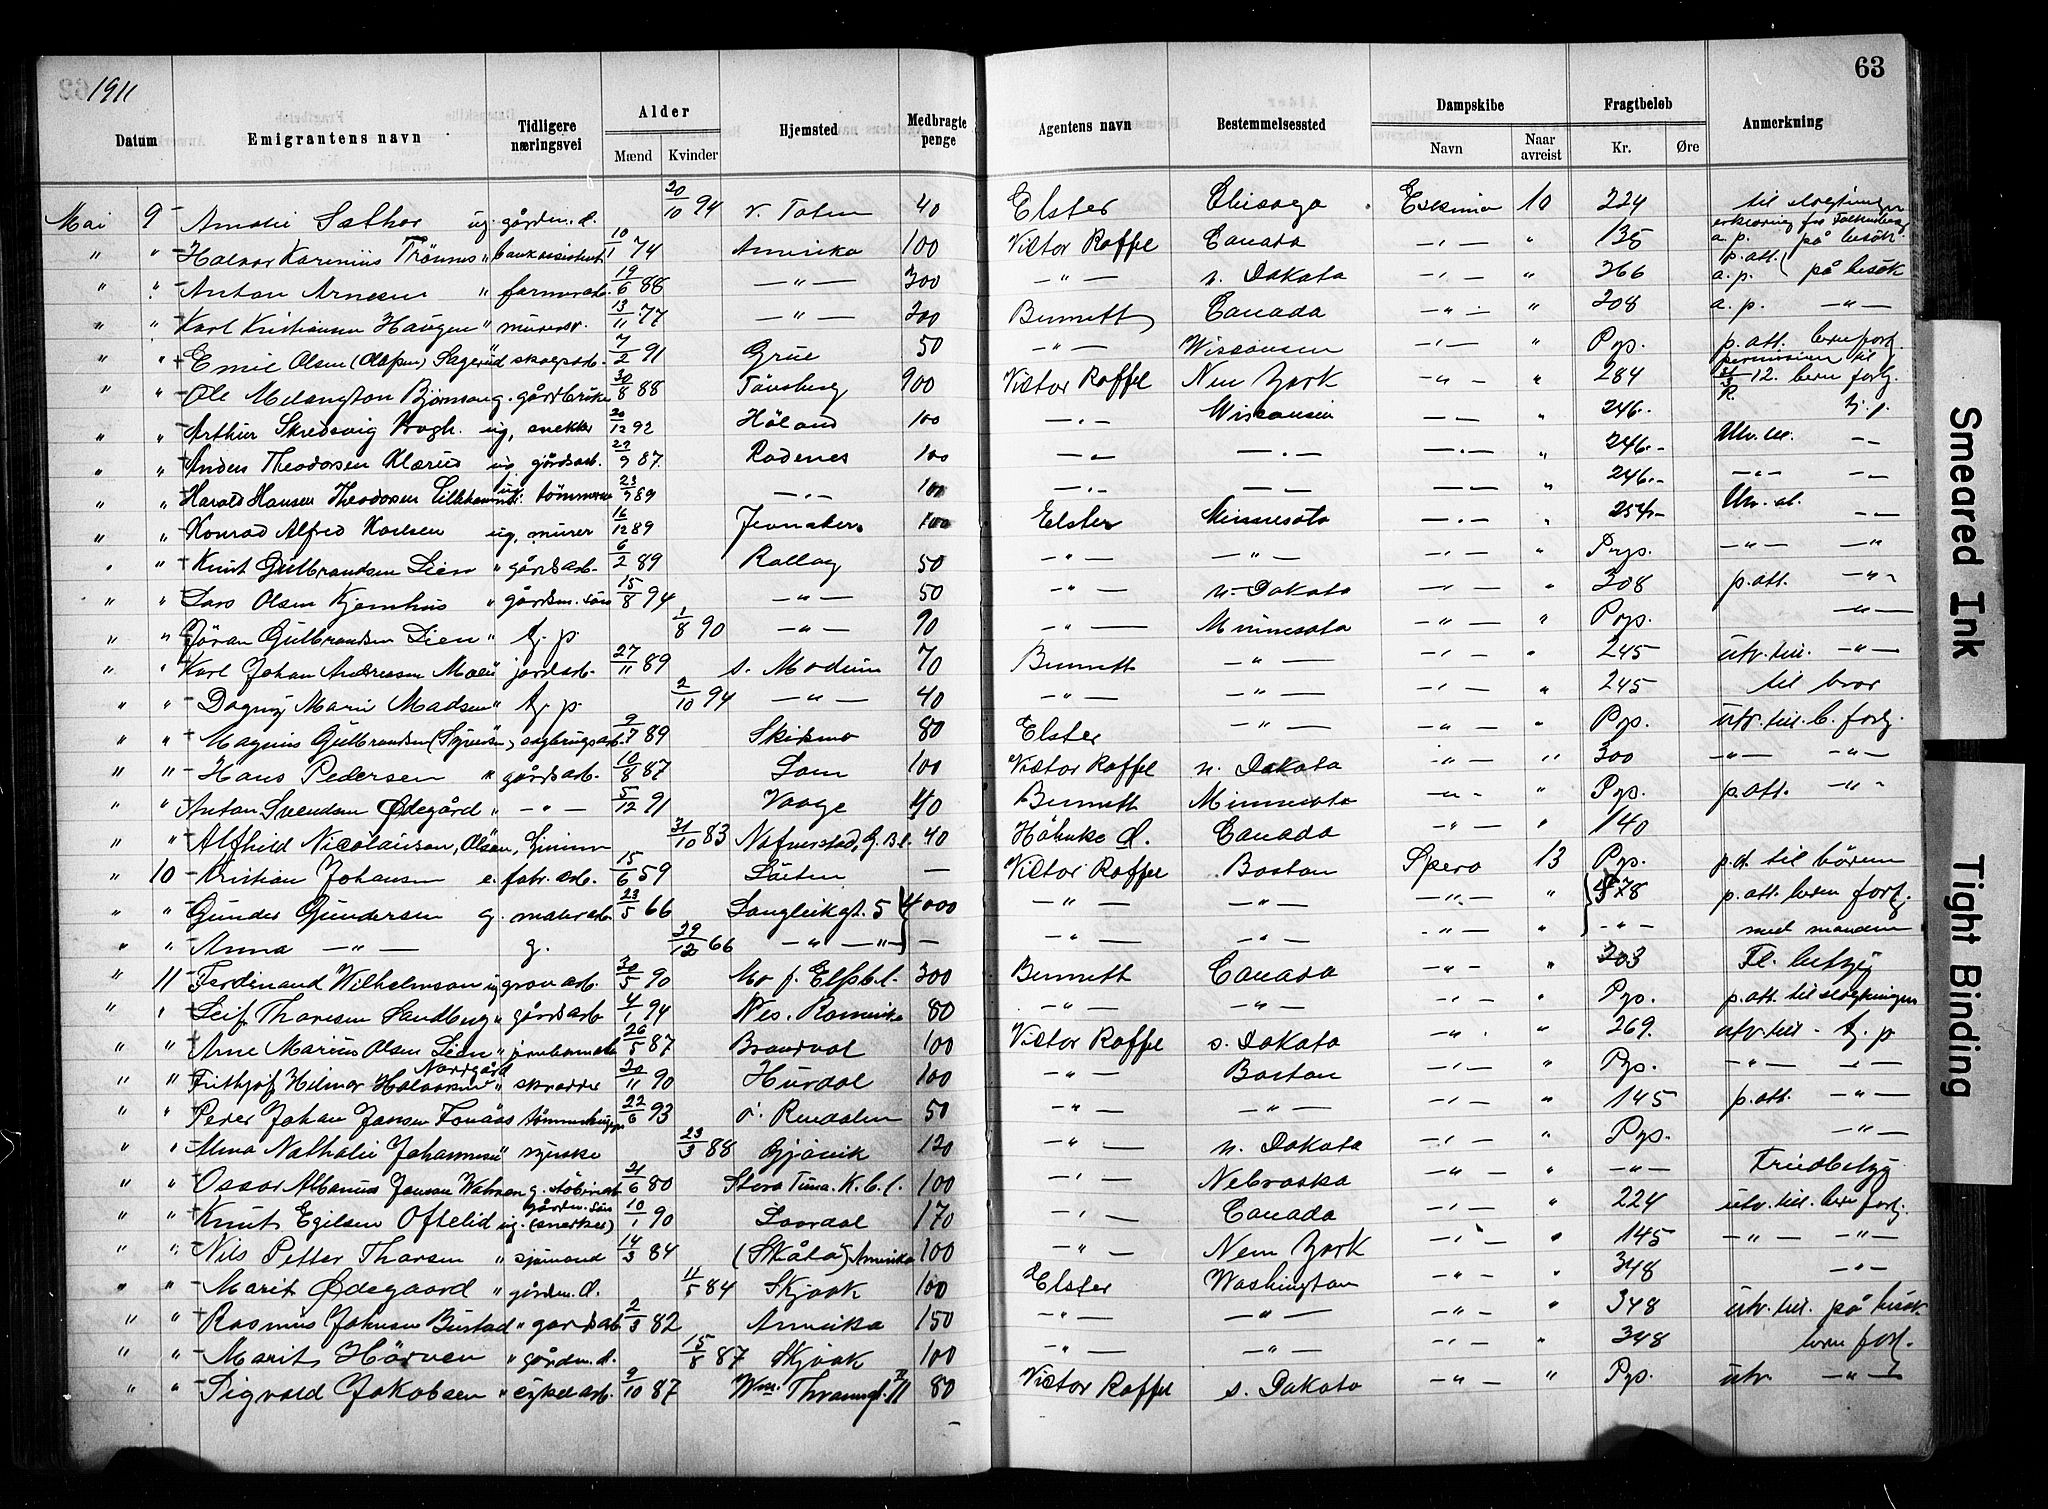 1911
63
Datum Emigrantens navn Tidligere næringsvei Alder Mænd Kvinder Hjemsted Medbragte penge Agentens navn Bestemmelsessted Dampskibe Navn Naar avreist Fragtbeløb Kr. Øre Anmerkning
Mai 9 Amalie Sæther ug. gårdm. d. 20/10 94 v. Toten 40 Elster Chicago Eskimo 10 224 til slegtninger
" " Halvor Karinius Trönnes " bankassistent 10/1 74 Amerika 100 Victor Roffel Canada -"- " 135 a.p. på besök
" " Anton Arnesen " farmerarb. 19/6 88 -"- 300 -"- n. Dakota -"- " 266 a.p. på besök
" " Karl Kristiansen Haugen " murerarb. 13/11 77 -"- 200 Bennett Canada -"- " 208 a.p. -"-
" " Emil Olsen (Olafsen) Sagerud skogsarb. 7/2 91 Grue 50 -"- Wisconsin -"- " Pp. p. att. bern forl.
" " Ole Melangton Björnson g. gårdbruker 30/8 88 Tönsberg 900 Victor Roffel New York -"- " 284 12. bern forl.
" " Arthur Skredsvig Krogh. ug. snekker 20/12 92 Höland 100 -"- Wisconsin -"- " 246.- tj. p.
" " Anders Theodorsen Klærud ug. gårdsarb. 22/9 87 Rödenes 100 -"- -"- -"- " 246.- Utv. til. -"-
" " Harald Hansen Theodorsen ug. tömmerm 23/9 89 -"- 100 -"- -"- -"- " 246.- -"- -"-
" " Konrad Alfred Karlsen ug. murer 16/12 89 Jevnaker 100 Elster Minnesota -"- " 254.- Utv. at. -"-
" " Knut Gulbrandsen Lien " gårdsarb. 6/2 89 Rollag 50 -"- -"- -"- " Pp. -"- -"-
" " Lars Olsen Kjemhus " gårdm. sön 15/8 94 -"- 50 -"- n. Dakota -"- " 208 p. att. -"-
" " Jöran Gulbrandsen Lien " tj. p. 1/8 90 -"- 90 -"- Minnesota -"- " Pp. -"-
" " Karl Johan Andressen Moen jordarb. 27/11 89 s. Modum 70 Bennett -"- -"- " 245 utv. till. -"-
" " Dagny Marie Madsen " tj. p. 2/10 94 -"- 40 -"- -"- -"- " 245 til bror
" " Magnus Gulbrandsen sagbrugsarb. 9/7 89 Skidsmo 80 Elster -"- -"- " Pp. utv. till. b. forl.
" " Hans Pedersen " gårdsarb. 10/8 87 Lom 100 Victor Roffel n. Dakota -"- " 300 -"- -"-
" " Anton Svendsen Ødegård " -"- 5/12 91 Vaage 40 Bennett Minnesota -"- " Pp. p. att. -"-
" " Alfhild Nicolausen, Olsen, 31/10 83 Nafverstad, G. B. l. 40 Höhnke d. Canada -"- " 140
" 10 Kristian Johansen e. fabr. arb. 15/6 59 Löiten - Victor Roffel Boston Spero 13 Pp. p.d. til börnene
" " Gunder Gundersen g. malerarb. 23/5 66 Langleikgt. 5 4000 -"- -"- -"- " 478 p. att. bern forl.
" " Anna -"- g. 29/12 66 -"- - -"- -"- -"- " -"- med manden
" 11 Ferdinand Wilhelmson ug grovarb. 30/5 90 Mo p. Elfsb. l. 300 Bennett Canada -"- " 203 Fl. betyg
" " Leif Thoresen Sandberg " gårdsarb. 4/1 94 Nes. Romerike 80 -"- -"- -"- " Pp. p. att. til slegtninger
" " Arne Marius Olsen Lien " jernbanearb 26/5 87 Brandval 100 Victor Roffel s. Dakota -"- " 269. utv. till. - tj. p
" " Frithjof Hilmar Halvorsen Nordgård " skrædder 20/11 90 Hurdal 100 -"- Boston -"- " Pp. -"- -"-
" " Peder Johan Jansen Fonåas tömmerhugger 22/6 93 ö. Rendalen 50 -"- -"- -"- " 145 p. att. -"-
" " Alma Nathalie Johannesen " syerske 23/3 88 Gjövik 120 -"- n. Dakota -"- " Pp. -"-
" " Oscar Albanus Jonson Wahman g. stöberiarb 21/6 80 Stora Tuna. K. b. l. 100 -"- Nebraska -"- " -"- Friedbetyg
" " Knut Egilsen Oftelid ug. gårdm. sön (snekker) 10/1 90 Laardal 170 -"- Canada -"- " 224 utv. till. bern forl.
" " Nils Petter Thorsen " sjömand 14/3 84 (Skåtöy) Amerika 100 -"- New York -"- " 145 -"- -"-
" " Marit Ødegaard " gårdm. d. 11/5 84 Skjaak 100 Elster Washington -"- " 348 -"-
" " Rasmus Johnsen Bustad " gardsarb 2/3 82 Amerika 150 -"- -"- -"- " 348 utv. till. på besök
" " Marit Hörven " gårdm. d. 15/8 87 Skjaak 100 -"- -"- -"- " 348 bern forl.
" " Sigvald Jakobsen " cykelarb. 9/10 87 Wm. Thranesgt. 11 80 Victor Roffel s. Dakota -"- " Pp. utv. -"-
Smeared Ink
Tight Binding